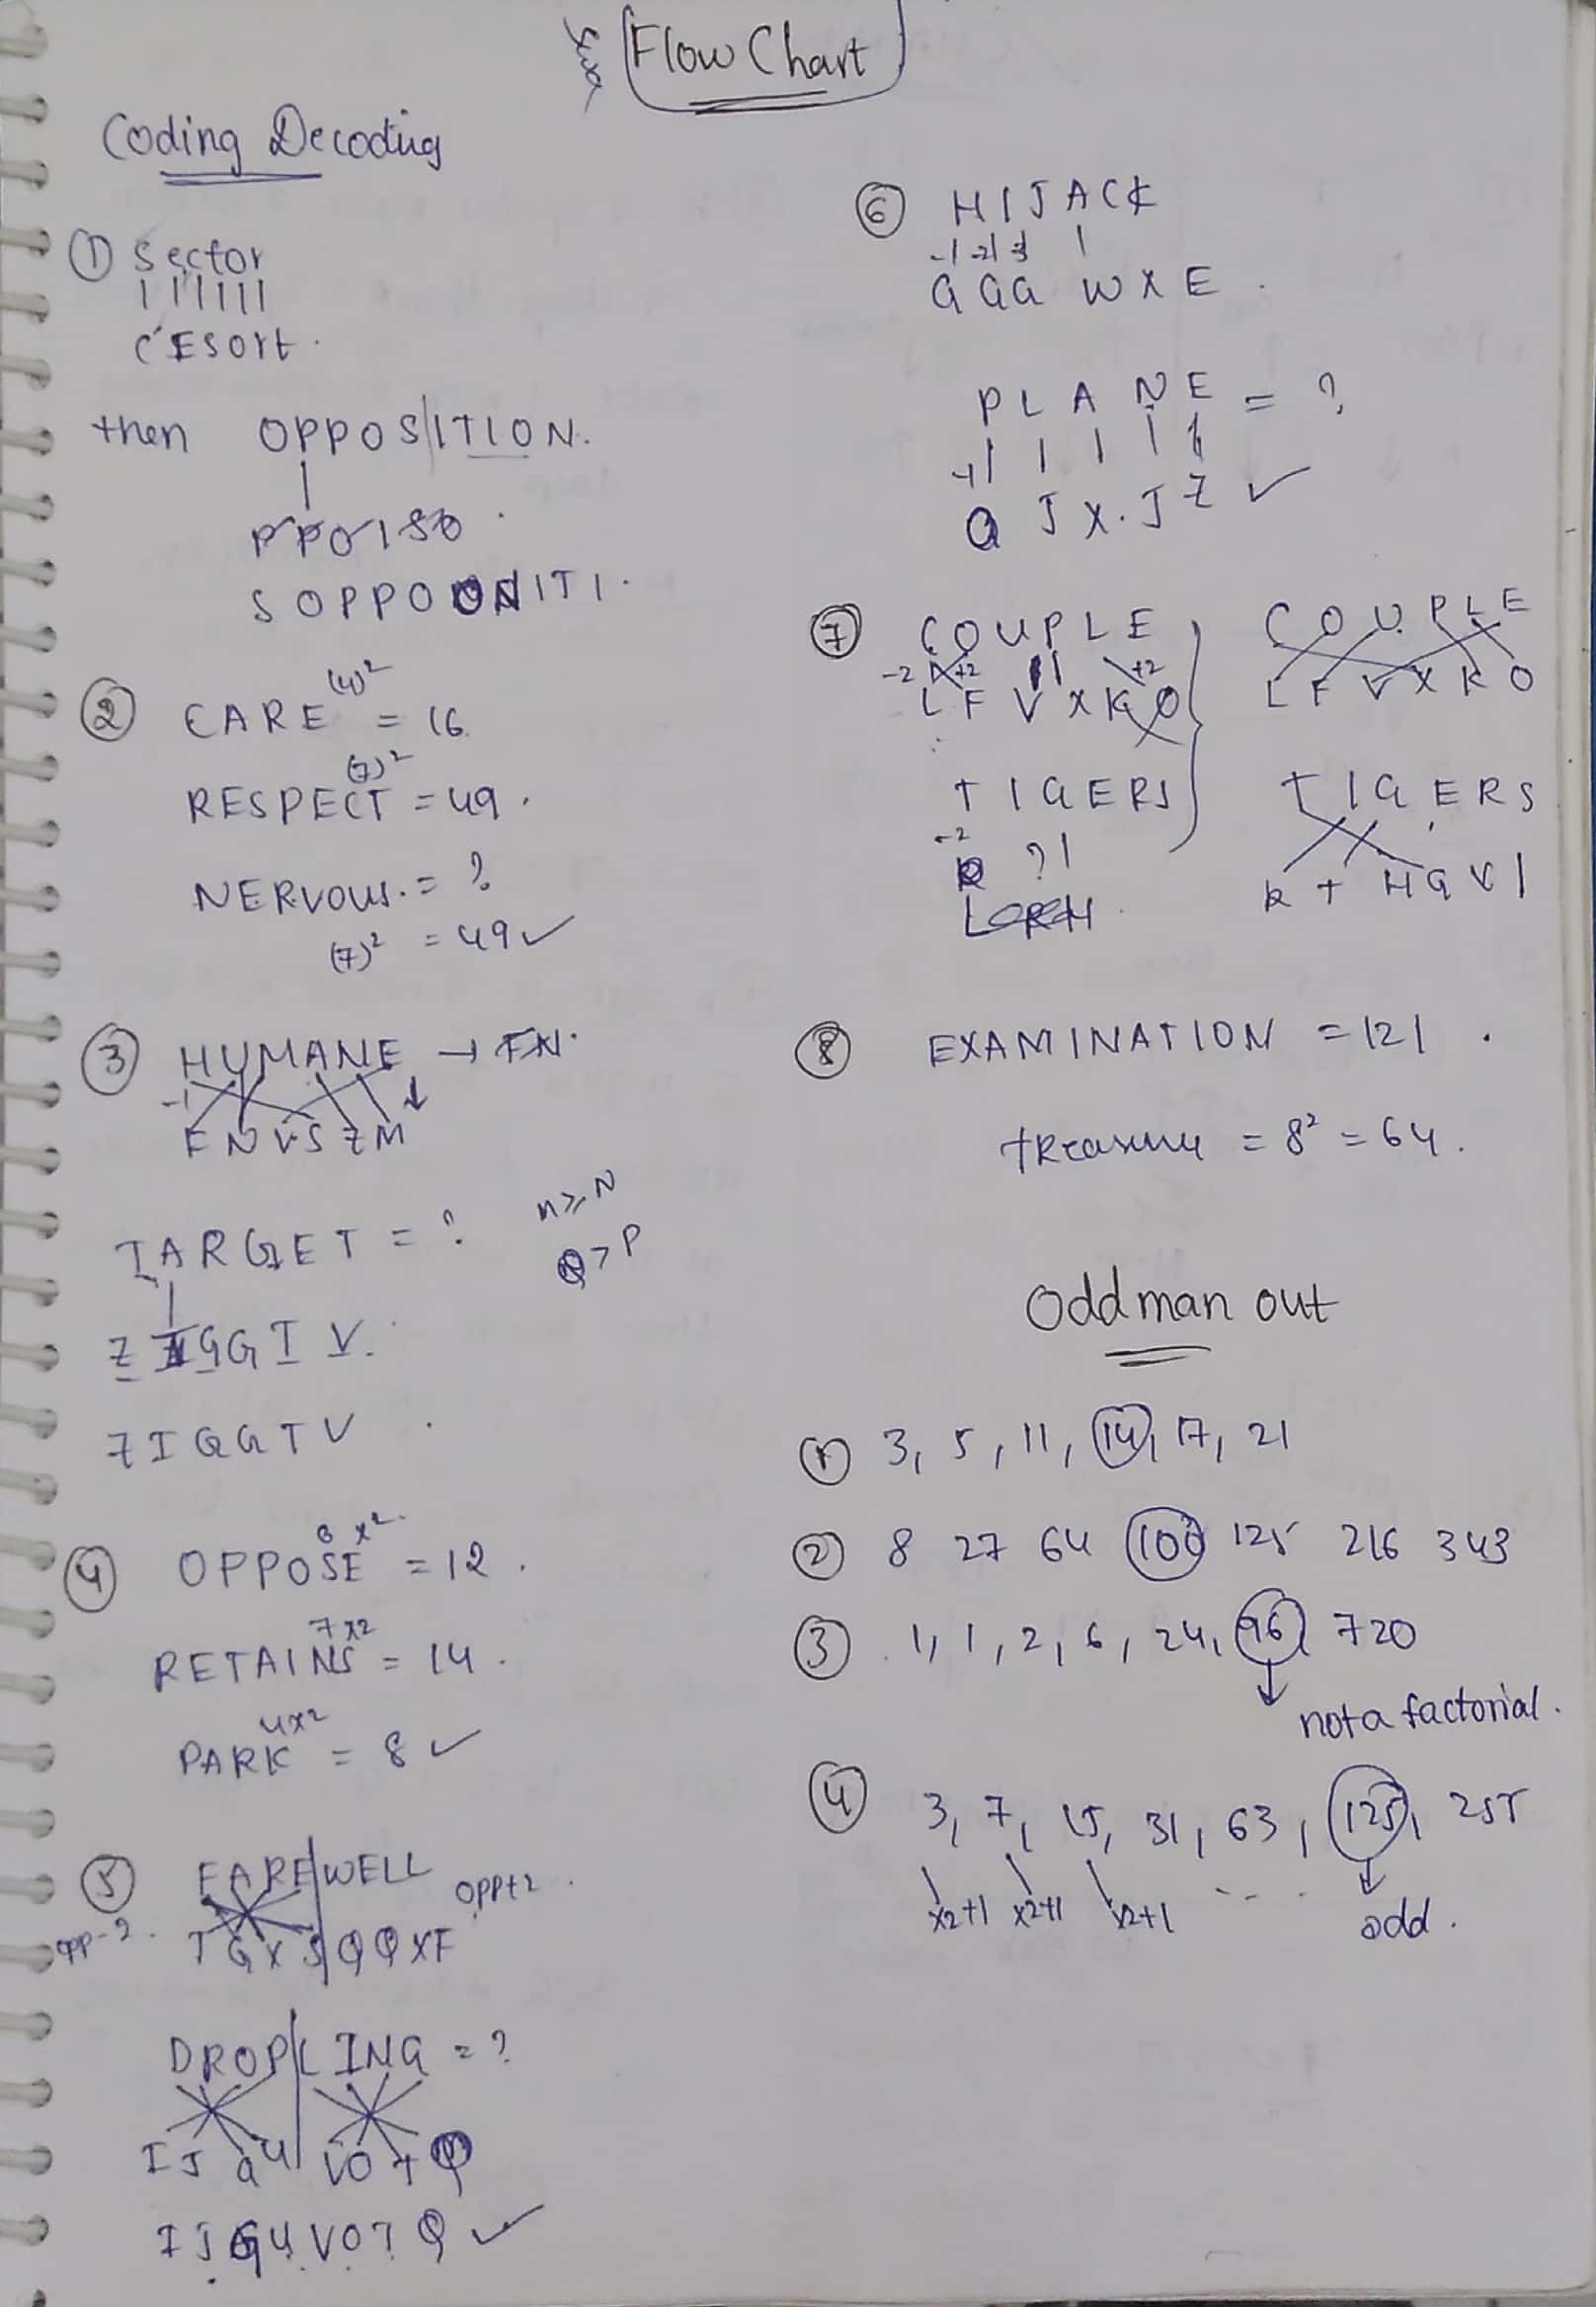 Flow Chart
Coding Decoding
① Sector
CESort.
then OPPOSITION.
SOPPOONITI.
② CARE (4)² = 16
RESPECT (7)² = 49.
NERVOUS. = ?
(7)² = 49 ✓
③ HUMANE → FN.
-1
F N V S Z M
TARGET = ?
Q > P
Z I Q G T V.
④ OPPOSE 6 x2 = 12.
RETAINS 7x2 = 14.
PARK 4x2 = 8 ✓
⑤ FARE|WELL opp+2.
opp-2. T G X S Q Q X F
DROP|LING = ?
I J G U V O T Q
I J G U V O T Q ✓
⑥ HIJACK
-1 -2 -3
G G G W X E.
PLANE = ?
-1
Q J X. J Z ✓
⑦ COUPLE
-2 +2 +2
L F V X K O
TIGERS
-2
?
COUPLE
L F V X K O
TIGERS
R T H G V I
⑧ EXAMINATION = 121.
treasure = 8² = 64.
Odd man out
① 3, 5, 11, 14, 17, 21
② 8 27 64 100 125 216 343
③ 1, 1, 2, 6, 24, 96, 720
not a factorial.
④ 3, 7, 15, 31, 63, 125, 255
x2+1 x2+1 x2+1 ... odd.